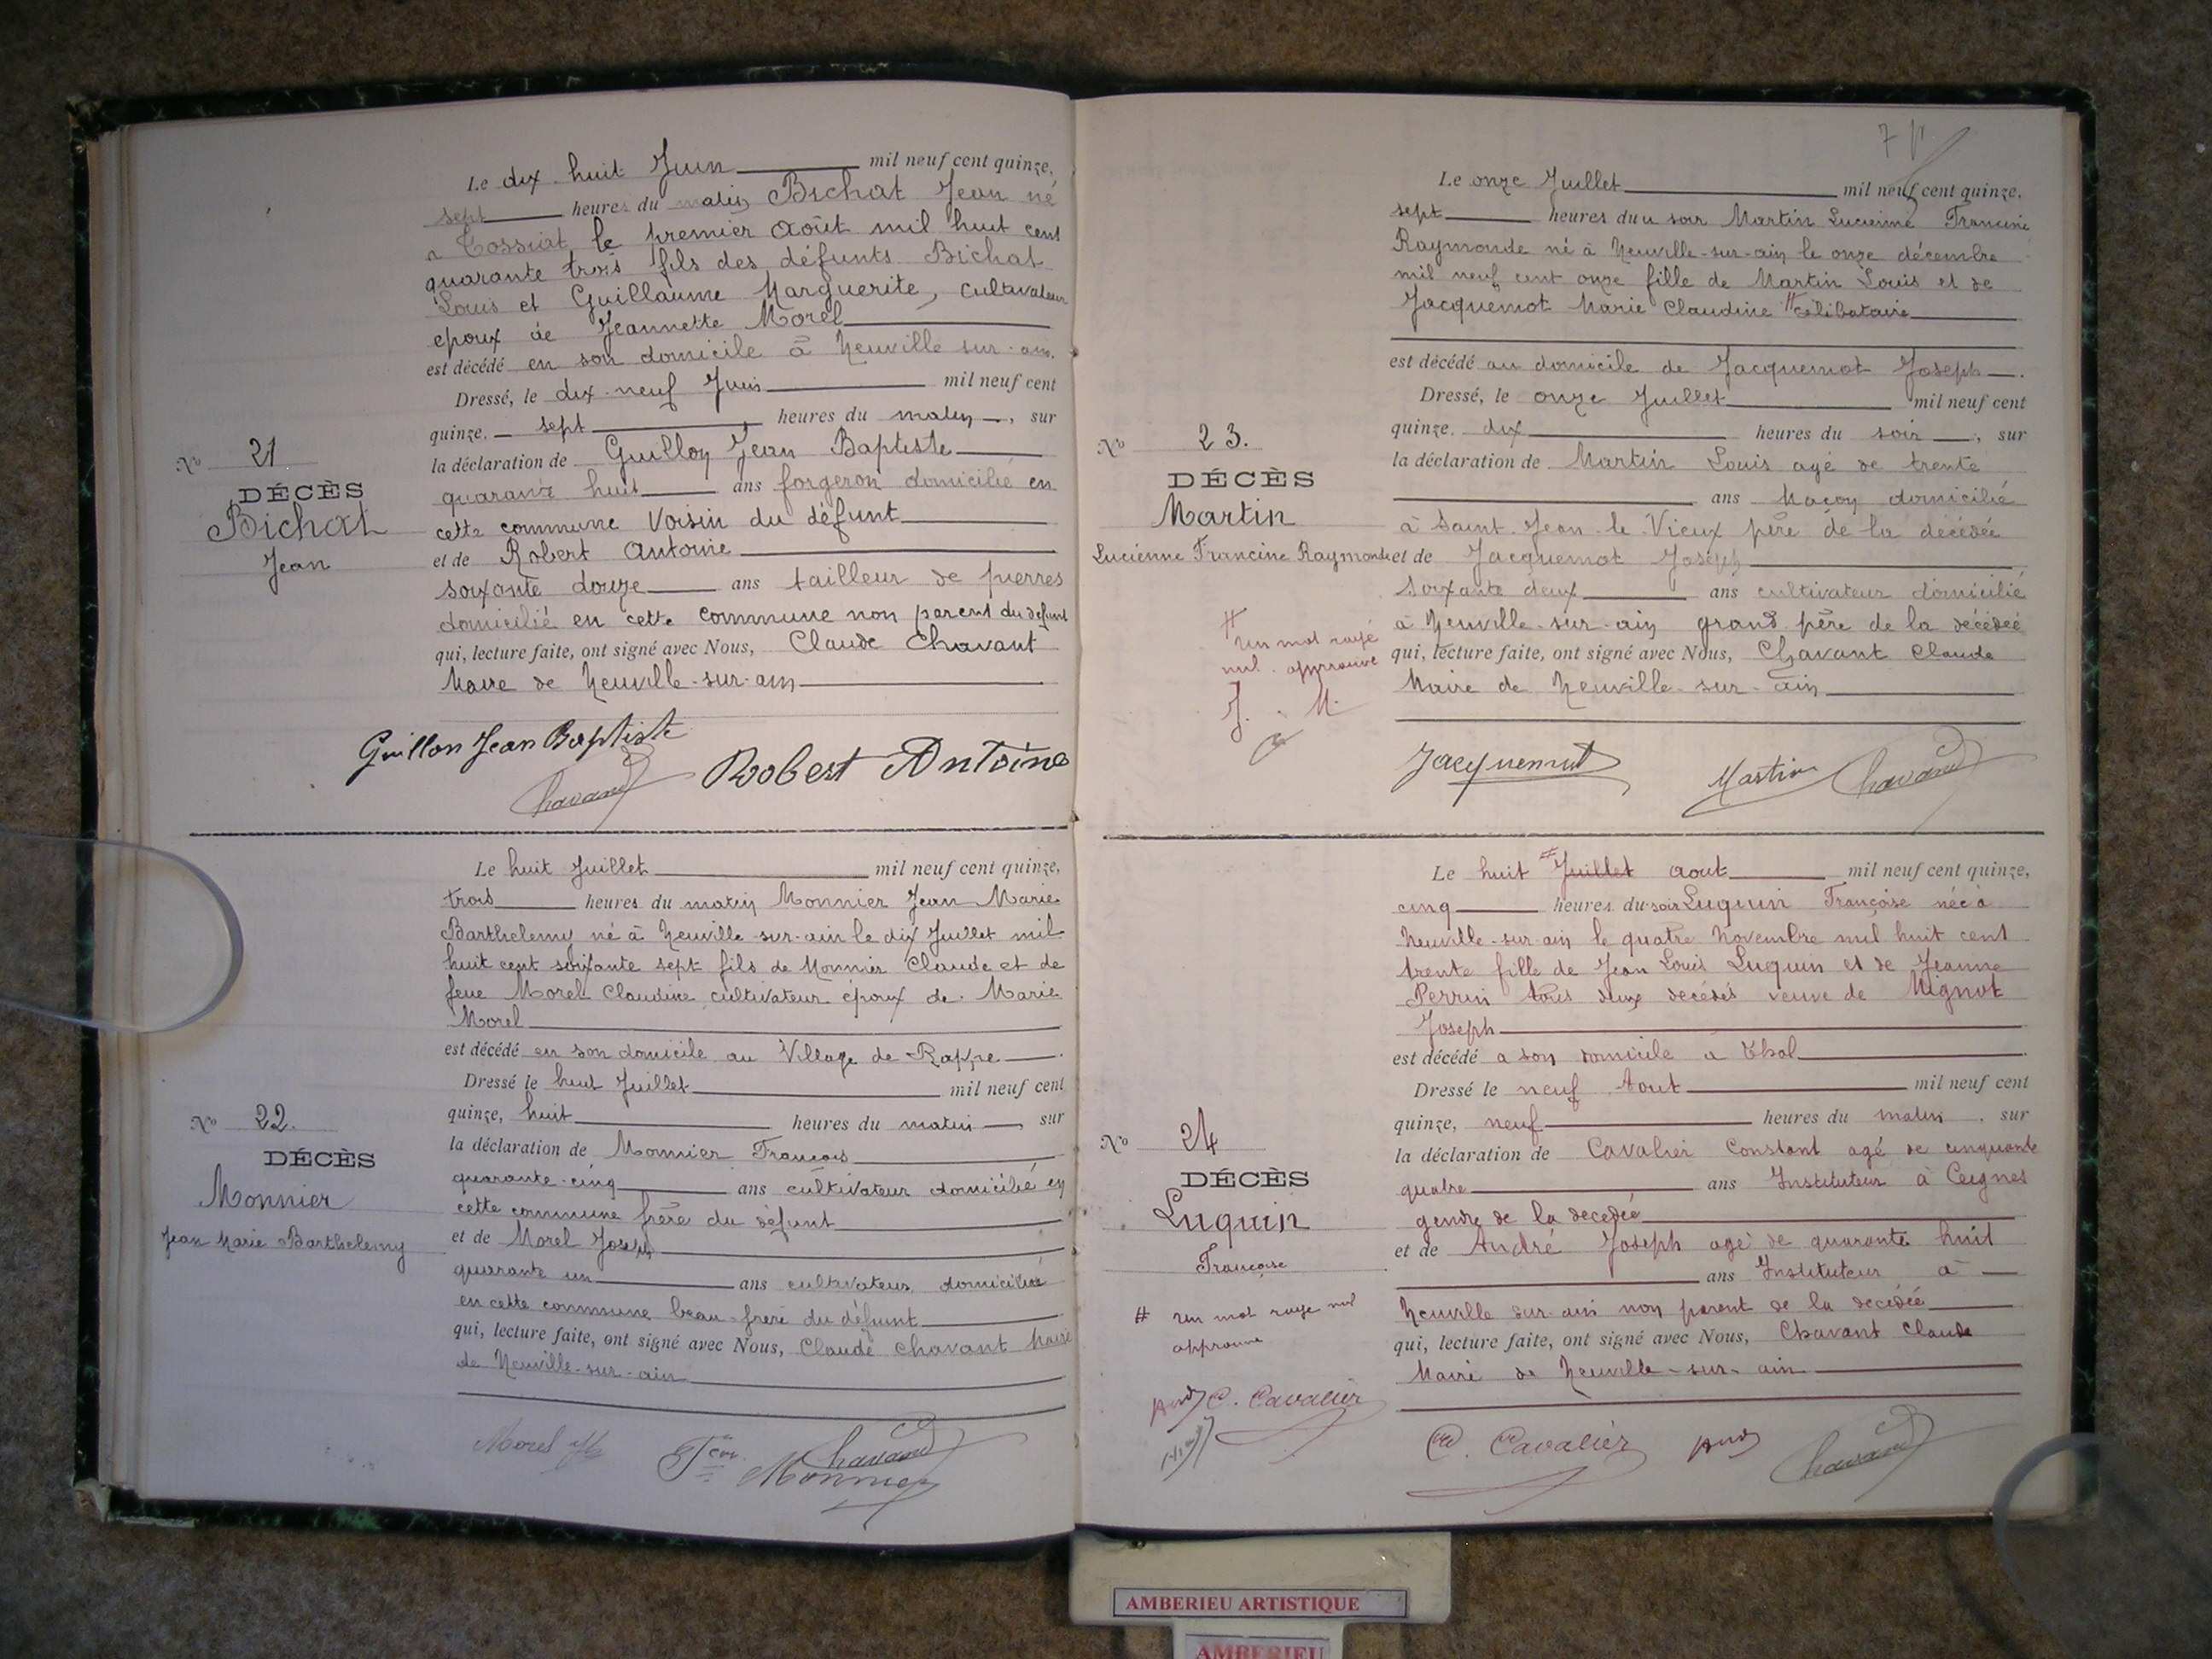 Le dix huit Juin mil neuf cent quinze,
sept heures du matin Bichat Jean né
a Tossiat le premier août mil huit cent
quarante trois fils des défunts Bichat
Louis et Guillaume Marguerite, cultivateur
epoux de Jeannette Morel
est décédé en son domicile à Neuville sur ain.
Dressé, le dix-neuf Juin mil neuf cent
quinze, sept heures du matin, sur
la déclaration de Guillon Jean Baptiste
quarante huit ans forgeron domicilié en
cette commune voisin du défunt
et de Robert Antoine
soixante douze ans tailleur de pierres
domicilié en cette commune non parent du defunt
qui, lecture faite, ont signé avec Nous, Claude Chavant
Maire de Neuville-sur-ain
No 21
DÉCÈS
Bichat
Jean
Guillon Jean Baptiste
Robert Antoine
Chavand
Le huit Juillet mil neuf cent quinze,
trois heures du matin Monnier Jean Marie
Barthelemy né à Neuville-sur-ain le dix Juillet mil
huit cent soixante sept fils de Monnier Claude et de
feue Morel Claudine cultivateur époux de Marie
Morel
est décédé en son domicile au Village de Rappe
Dressé le huit Juillet mil neuf cent
quinze, huit heures du matin, sur
la déclaration de Monnier François
quarante-cinq ans cultivateur domicilié en
cette commune frère du défunt
et de Morel Joseph
quarante un ans cultivateur domicilié
en cette commune beau-frère du défunt
qui, lecture faite, ont signé avec Nous, Claude Chavant Maire
de Neuville-sur-ain
No 22.
DÉCÈS
Monnier
Jean Marie Barthelemy
Morel
Chavand
Monnier
7
Le onze Juillet mil neuf cent quinze,
sept heures du soir Martin Lucienne Francine
Raymonde né à Neuville-sur-ain le onze décembre
mil neuf cent onze fille de Martin Louis et de
Jacquemot Marie Claudine # célibataire
est décédé au domicile de Jacquemot Joseph.
Dressé, le onze Juillet mil neuf cent
quinze, dix heures du soir, sur
la déclaration de Martin Louis agé de trente
ans Maçon domicilié
à Saint-Jean-le-Vieux père de la décédée
et de Jacquemot Joseph
soixante deux ans cultivateur domicilié
à Neuville-sur-ain grand père de la décédée
qui, lecture faite, ont signé avec Nous, Chavant Claude
Maire de Neuville-sur-ain
No 23.
DÉCÈS
Martin
Lucienne Francine Raymonde
# Un mot rayé
nul approuvé
J. M.
Jacquemot
Martin
Chavand
Le huit # Juillet aout mil neuf cent quinze,
cinq heures du soir Luquin Françoise née à
Neuville-sur-ain le quatre Novembre mil huit cent
trente fille de Jean Louis Luquin et de Jeanne
Perrin tous deux décédés veuve de Mignot
Joseph
est décédé a son domicile à Thol
Dressé le neuf Aout mil neuf cent
quinze, neuf heures du matin, sur
la déclaration de Cavalier Constant agé de cinquante
quatre ans Instituteur à Ceignes
gendre de la décédée
et de André Joseph agé de quarante huit
ans Instituteur à
Neuville sur-ain non parent de la décédée
qui, lecture faite, ont signé avec Nous, Chavant Claude
Maire de Neuville-sur-ain
No 24
DÉCÈS
Luquin
Françoise
# Un mot rayé nul
approuvé
C. Cavalier
C. Cavalier
Chavand
AMBERIEU ARTISTIQUE
AMBERIEU